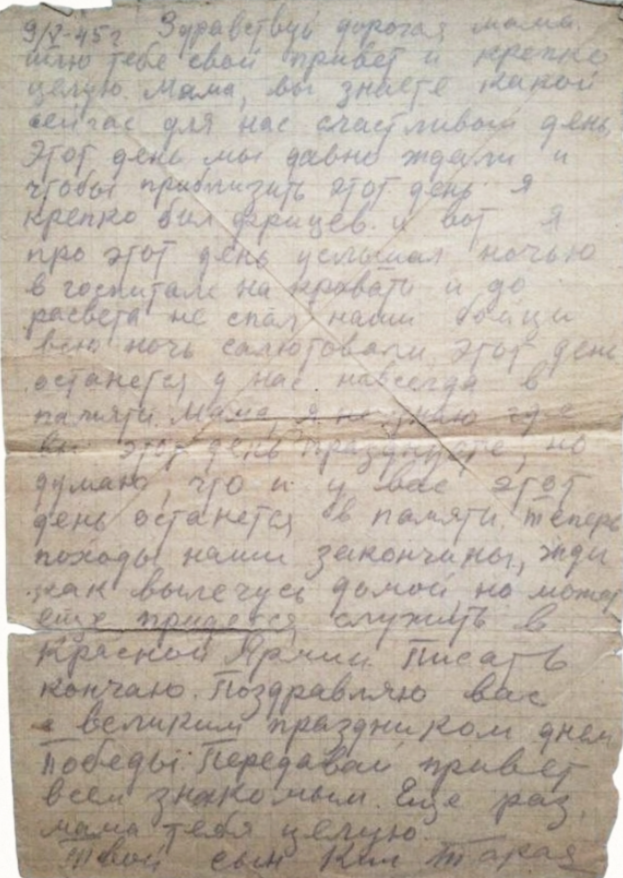 9/V-45г Здравствуй дорогая мама.
Шлю тебе свой привет и крепко
целую. Мама, вы знаете какой
сейчас для нас счастливый день,
Этот день мы давно ждали и
чтобы приблизить этот день я
крепко бил фрицев. и вот я
про этот день услышал ночью
в госпитале на кровати и до
расвета не спал наши бойци
всю ночь салютовали этот день
останется у нас навсегда в
памяти. Мама, я не знаю где
вы этот день празднуете, но
думаю, что и у вас этот
день останется в памяти. Теперь
походы наши закончины, жди
как вылечусь домой но может
еще придется служить в
Красной Армии. Писать
кончаю. Поздравляю вас
с великим праздником днем
Победы. Передавай привет
всем знакомым. Еще раз,
мама тебя целую.
Твой сын Ким Тарая